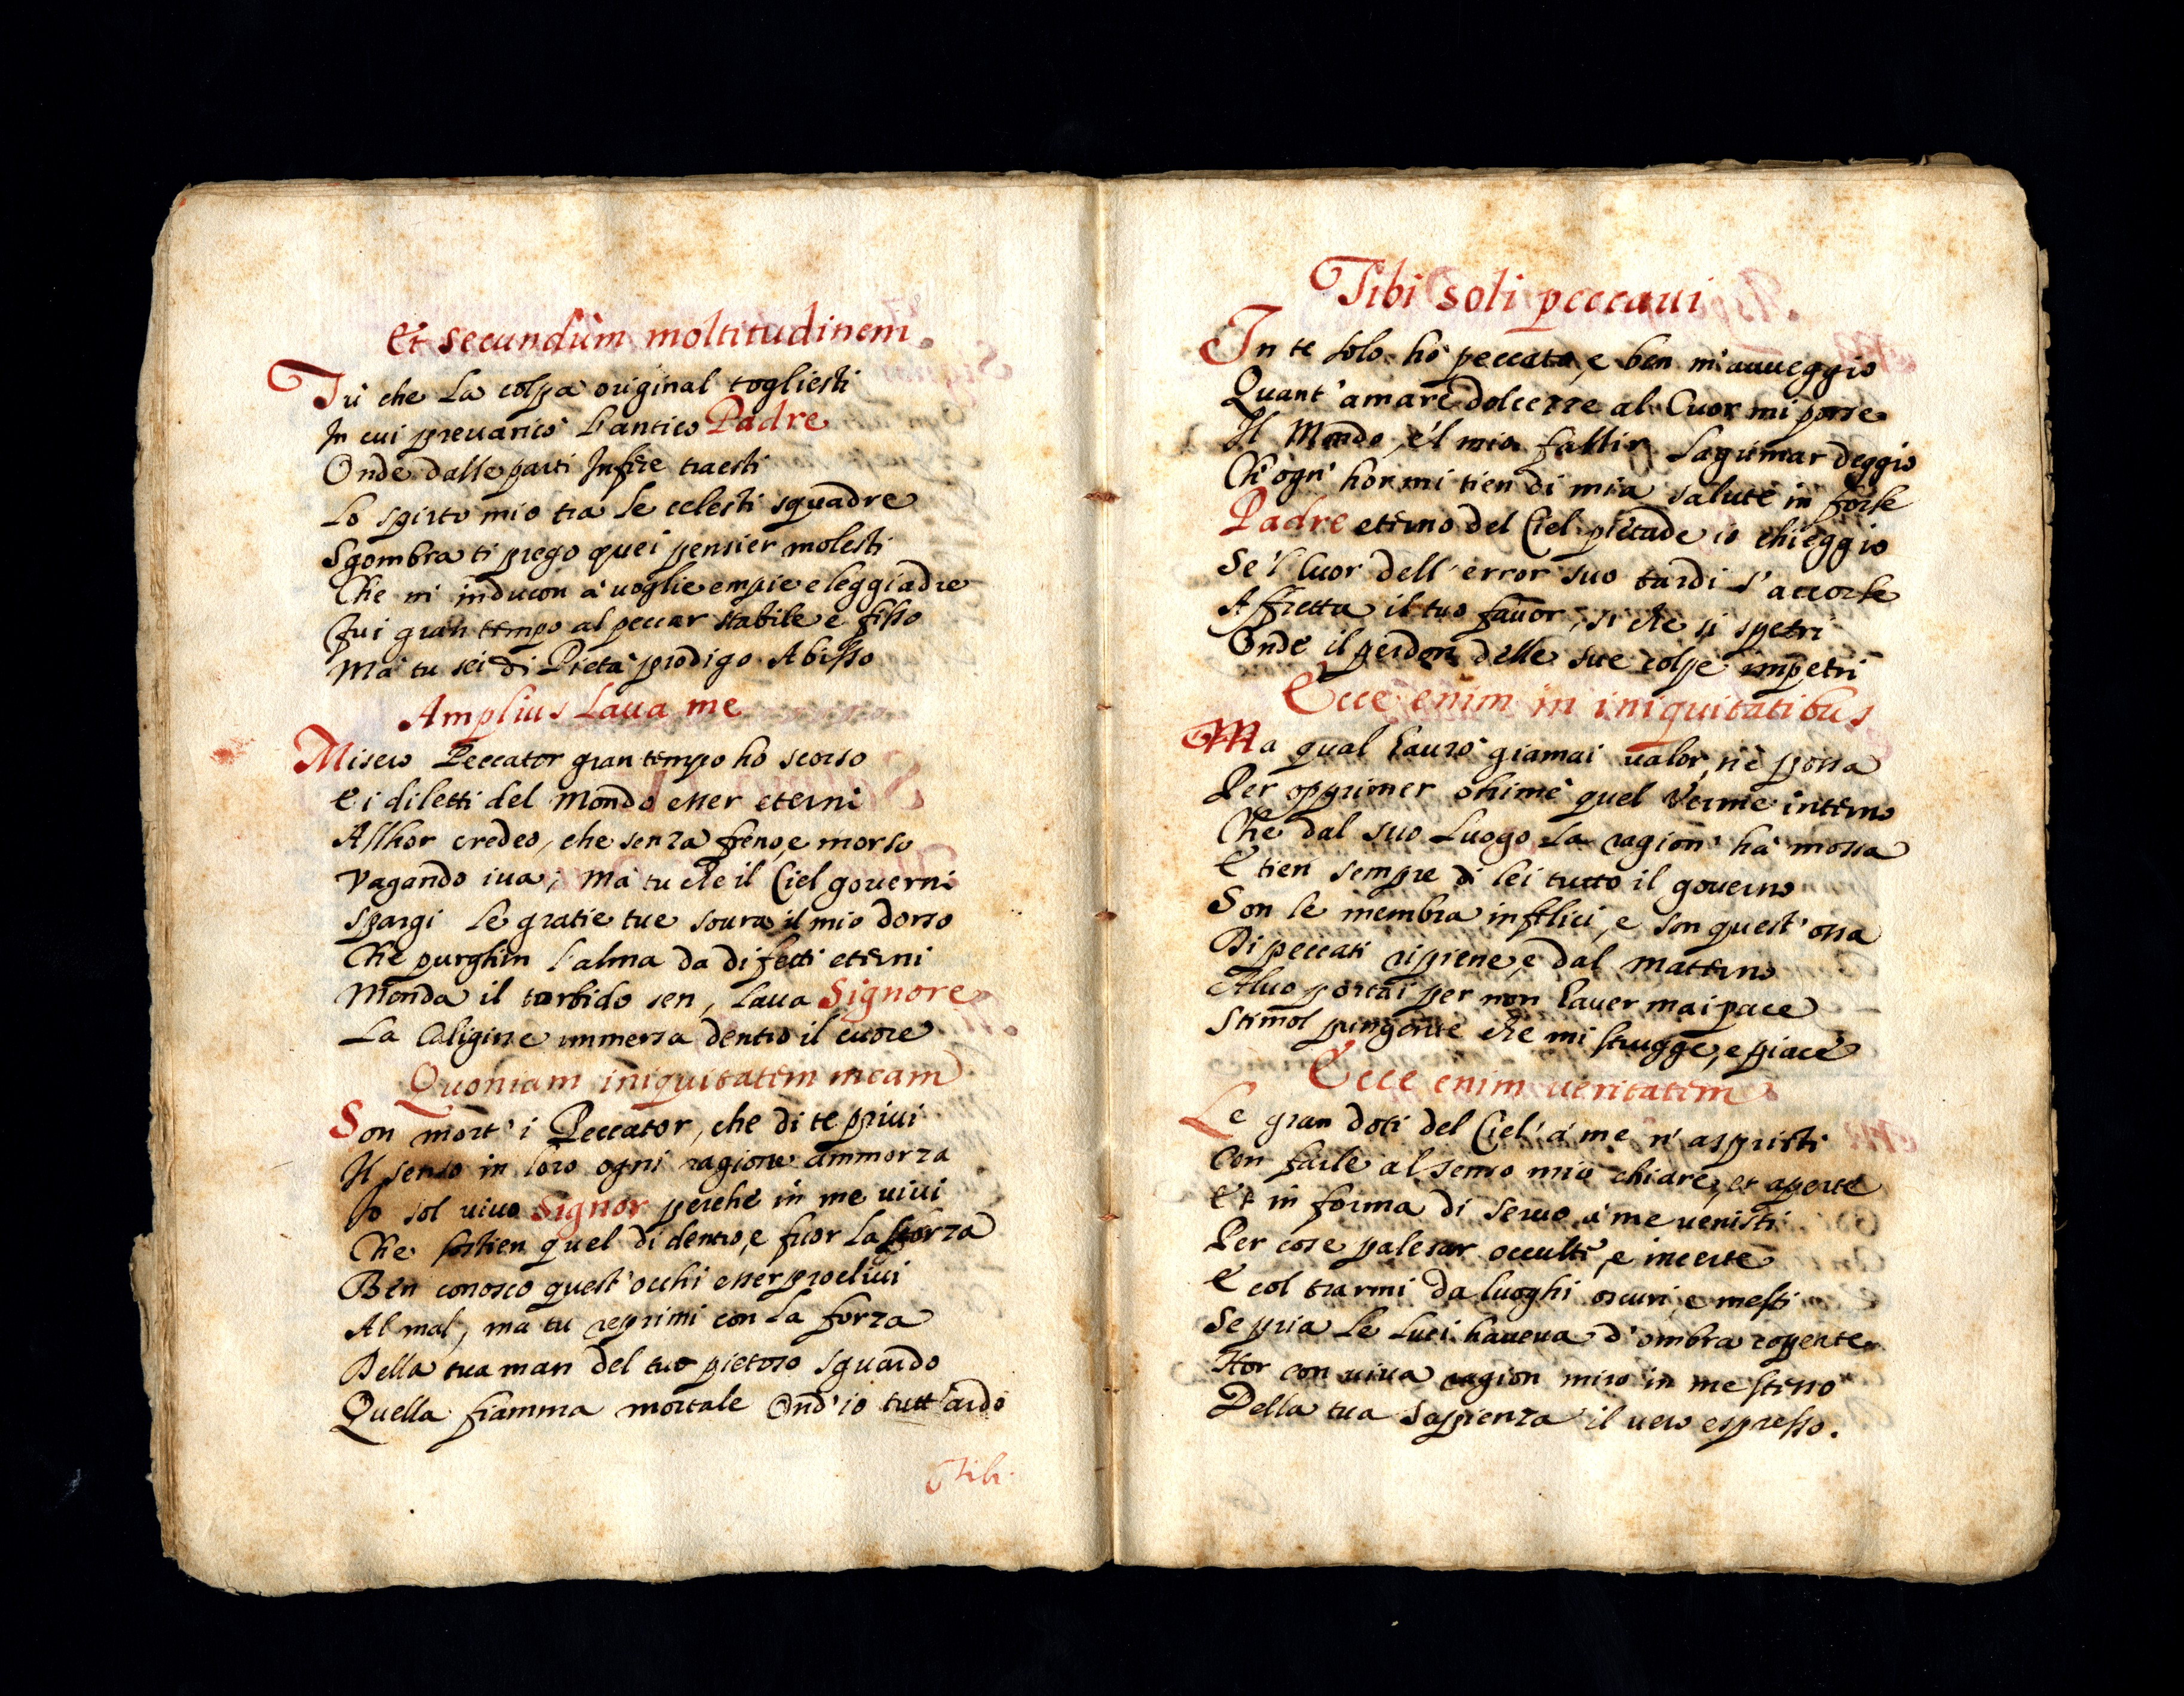 Et secundùm moltitudinem.
Tù che La colpa original togliesti
In cui preuaricò L'antico Padre
Onde dalle parti Infere traesti
Lo spirto mio tra le celesti squadre
Sgombra ti prego quei pensier molesti
Che m'inducon à uoglie empie e leggiadre
Fui gran tempo al peccar stabile e fisso
Mà tu sei di Pietà prodigo Abisso
Amplius Laua me
Misero Peccator gran tempo ho scorso
E i diletti del Mondo esser eterni
Allhor credeo, che senza freno, e morso
Vagando iua; Mà tu che il Ciel gouerni
Spargi le gratie tue soura il mio dorso
Che purghin l'alma da difetti eterni
Monda il torbido sen, Laua Signore
La Caligine immersa dentro il cuore
Quoniam iniquitatem meam
Son mort' i Peccator, che di te priui
Il senso in loro ogni ragione ammorza
Io sol uiuo Signor perche in me uiui
Che sostien quel di dentro, e fuor La scorza
Ben conosco quest'occhi esser procliui
Al mal, ma tu reprimi con La forza
Della tua man del tuo pietoso sguardo
Quella fiamma mortale Ond'io tutt'ardo
Tibi
Tibi soli peccaui
In te solo hò peccato, e ben m'auueggio
Quant'amare dolcezze al Cuor mi porse
Il Mondo, e'l mio fallir Lagrimar deggio
Ch'ogn'hor mi tien di mia salute in forse
Padre eterno del Ciel pietade io chieggio
Se'l Cuor dell'error suo tardi s'accorse
Affretta il tuo fauor, si che si spetri
Onde il perdon delle sue colpe impetri
Ecce enim in iniquitatibus
Ma qual haurò giamai ualor, nè possa
Per opprimer ohimè quel Verme interno
Che dal suo Luogo La ragion hà mossa
E tien sempre di lei tutto il gouerno
Son le membra infelici, e son quest'ossa
Di peccati ripiene, e dal materno
Aluo portai per non hauer mai pace
Stimol pungente che mi strugge, e piace
Ecce enim ueritatem
Le gran doti del Ciel' à me n'apristi
Con farle al senso mio chiare, et aperte
Et in forma di seruo à me uenisti
Per cose palesar occulte, e incerte
E col trarmi da luoghi oscuri, e mesti
Se pria le Luci haueua d'ombra coperte
Hor con uiua ragion miro in me stesso
Della tua Sapienza il uero espresso.